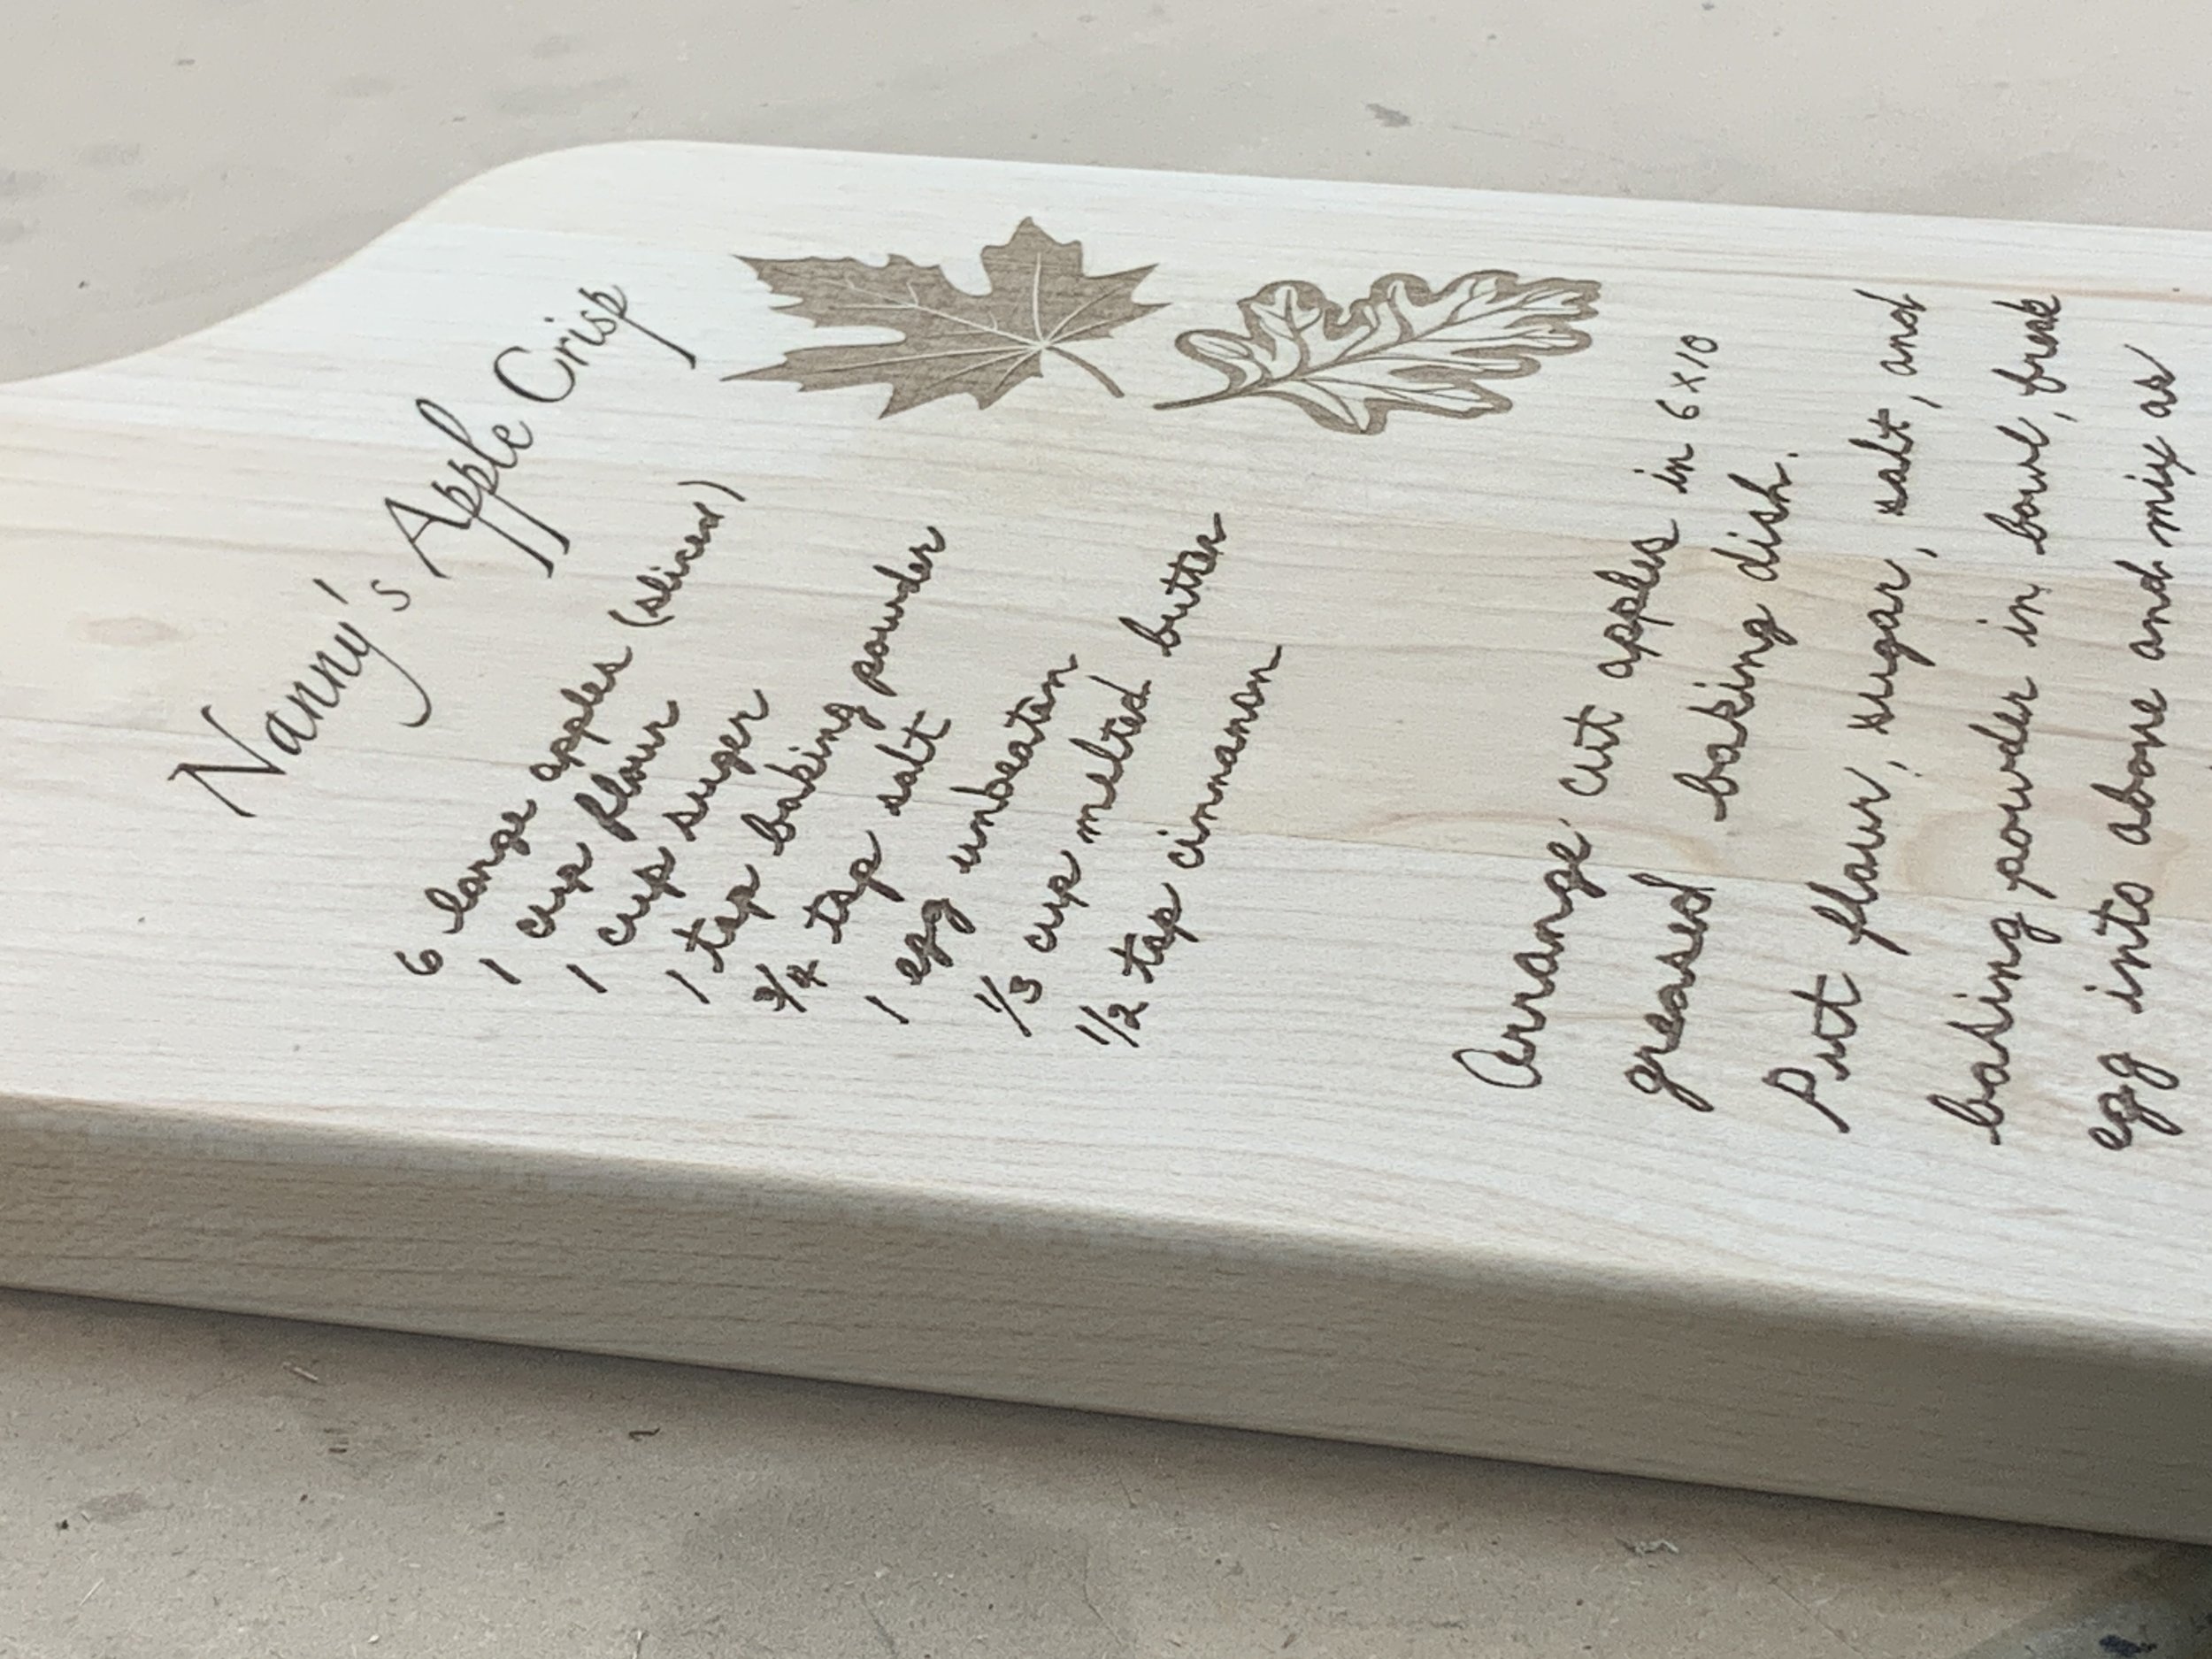 Nanny's Apple Crisp
6 large apples (slices)
1 cup flour
1 cup suger
1 tsp baking powder
3/4 tsp salt
1 egg unbeaten
1/3 cup melted butter
1/2 tsp cinnamon
Arrange cut apples in 6x10
greased baking dish.
Put flour, sugar, salt, and
baking powder in bowl, break
egg into above and mix as